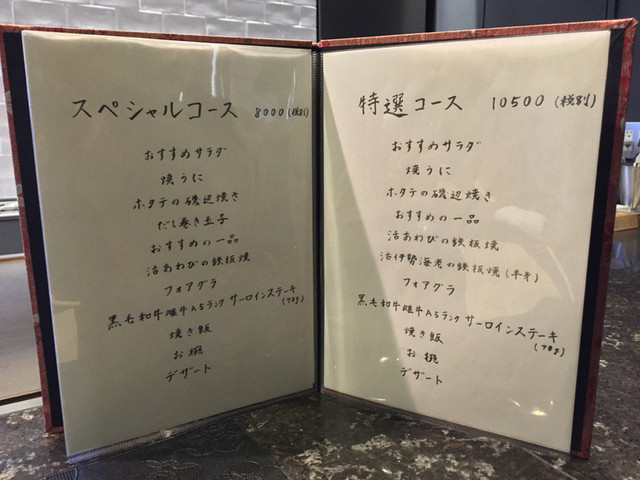 スペシャルコース 8000(税別)
おすすめサラダ
焼うに
ホタテの磯辺焼き
だし巻き玉子
おすすめの一品
活あわびの鉄板焼
フォアグラ
黒毛和牛雌牛A5ランク サーロインステーキ
(70g)
焼き飯
お椀
デザート
特選コース 10500(税別)
おすすめサラダ
焼うに
ホタテの磯辺焼き
おすすめの一品
活あわびの鉄板焼
活伊勢海老の鉄板焼(半身)
フォアグラ
黒毛和牛雌牛A5ランク サーロインステーキ
(70g)
焼き飯
お椀
デザート